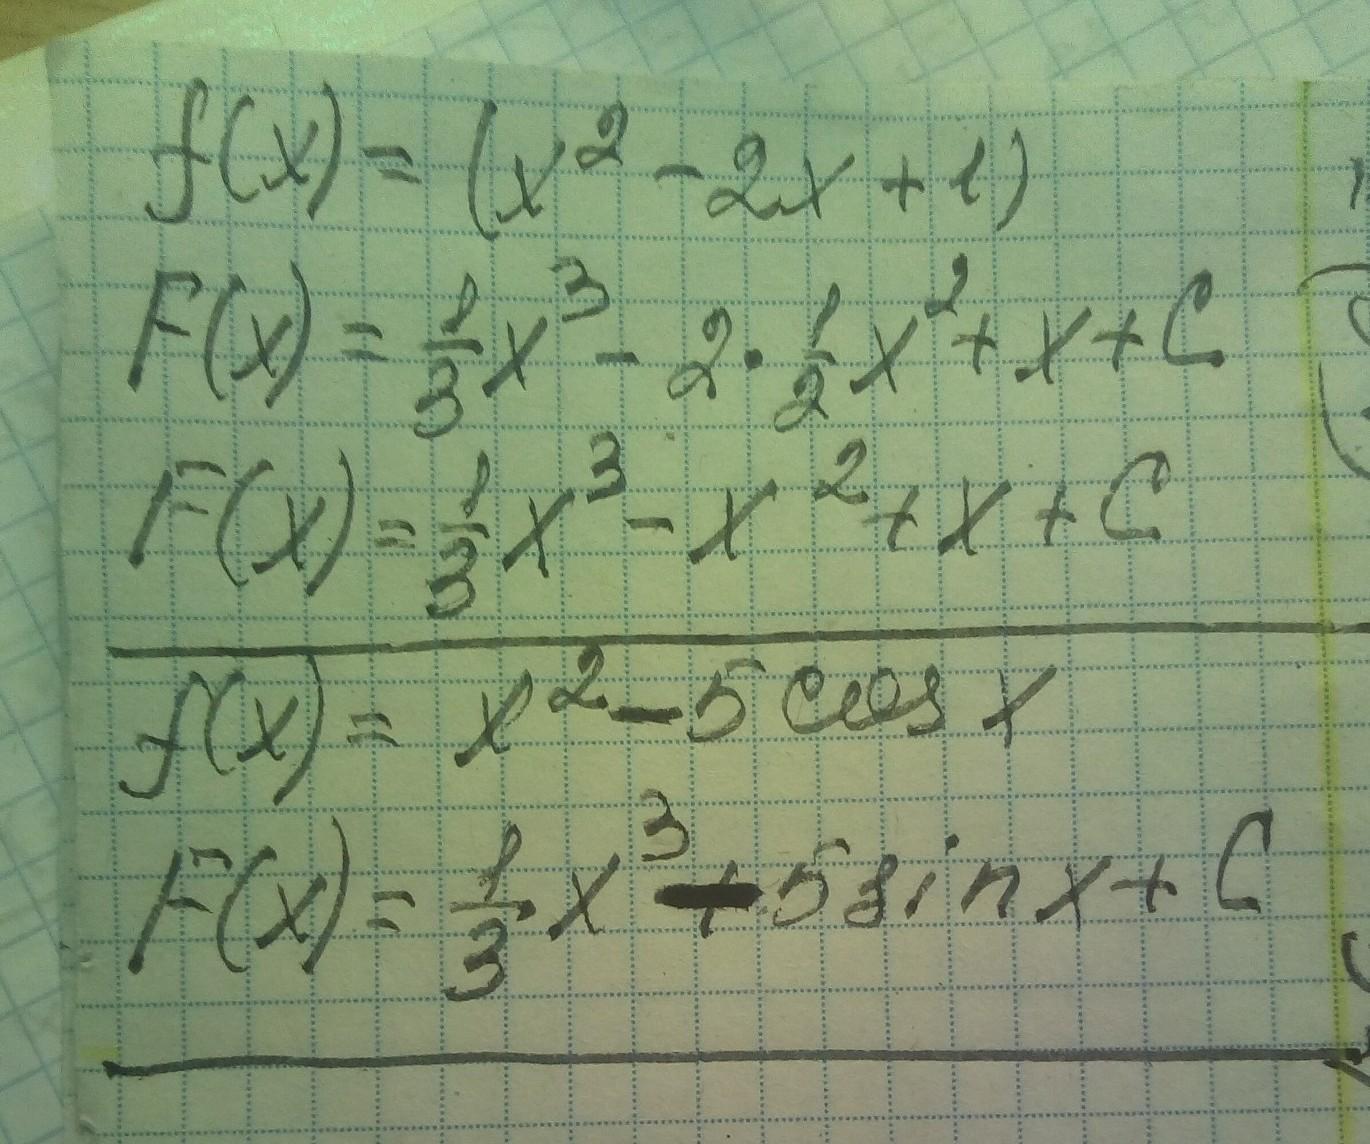 f(x) = (x² - 2x + 1)
F(x) = 1/3 x³ - 2 · 1/2 x² + x + C
F(x) = 1/3 x³ - x² + x + C
f(x) = x² - 5 cos x
F(x) = 1/3 x³ - 5 sin x + C